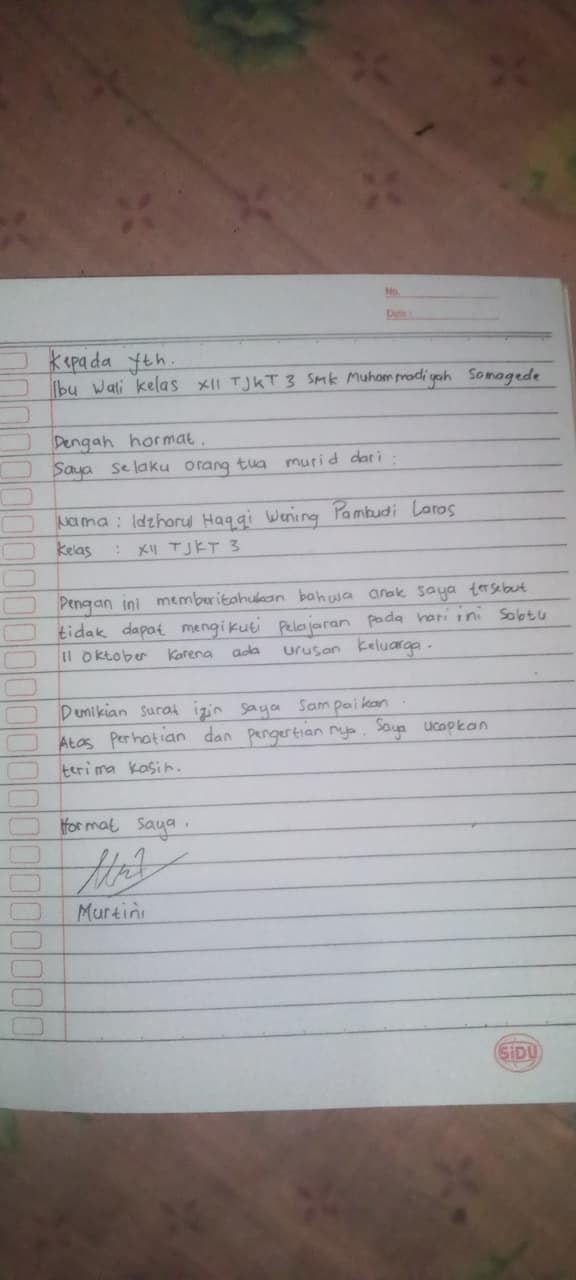 No.
Date :
Kepada Yth.
Ibu Wali Kelas XII TJKT 3 SMK Muhammadiyah Somagede
Dengah hormat.
Saya selaku orang tua murid dari :
Nama : Idzharul Haqqi Wening Pambudi Laras
Kelas : XII TJKT 3
Dengan ini memberitahukan bahwa anak saya tersebut
tidak dapat mengikuti pelajaran pada hari ini Sabtu
11 Oktober karena ada urusan keluarga.
Demikian surat izin saya sampaikan.
Atas perhatian dan pengertian nya. Saya ucapkan
terima kasih.
Hormat saya.
Murtini
SiDU